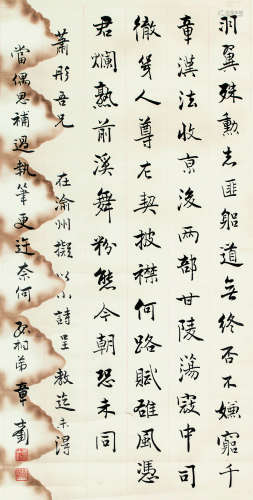 羽翼殊勳志匪躳道無終否不嫌窮千
章漢法收京後兩部甘陵蕩寇中司
徹幾人尊左契披襟何路賦雄風憑
君爛熟前溪舞粉態今朝恐未同
蕭彤吾兄 在渝州擬以小詩呈教迄未得
當偶思補過執筆更迕奈何 孤桐弟 章士釗